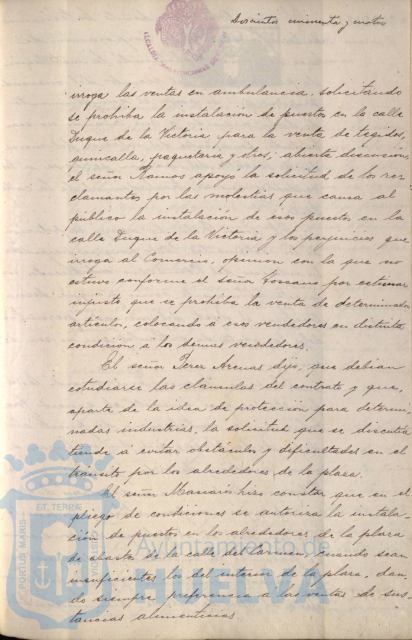 Doscientos cincuenta y cuatro
ALCALDIA
irroga las ventas en ambulancia, solicitando
se prohiba la instalacion de puestos en la calle
Duque de la Victoria para la venta de tejidos,
quincalla, paqueteria y otros; abierta discusion,
el señor Ramos apoyó la solicitud de los re-
clamantes por las molestias que causa al
público la instalacion de esos puestos en la
calle Duque de la Victoria y los perjuicios que
irroga al Comercio, opinion con la que no
estuvo conforme el señor Toscano por estimar
injusto que se prohiba la venta de determinados
articulos, colocando á esos vendedores en distinta
condicion á los demas vendedores.
El señor Perez Arenas dijo, que debian
estudiarse las clausulas del contrato y que,
aparte de la idea de protección para determi-
nadas industrias, la solicitud que se discutia
tiende á evitar obstaculos y dificultades en el
transito por los alrededores de la plaza.
El señor hizo constar que en el
pliego de condiciones se autoriza la instala-
ción de puestos en los alrededores de la plaza
de abasto de la calle del Carmen cuando sean
insuficientes los del interior de la plaza, dan-
do siempre preferencia á las ventas de sus-
tancias alimenticias
PORTUS MARIS
ET TERRÆ
CUSTODIA
Ayuntamiento de
HUELVA